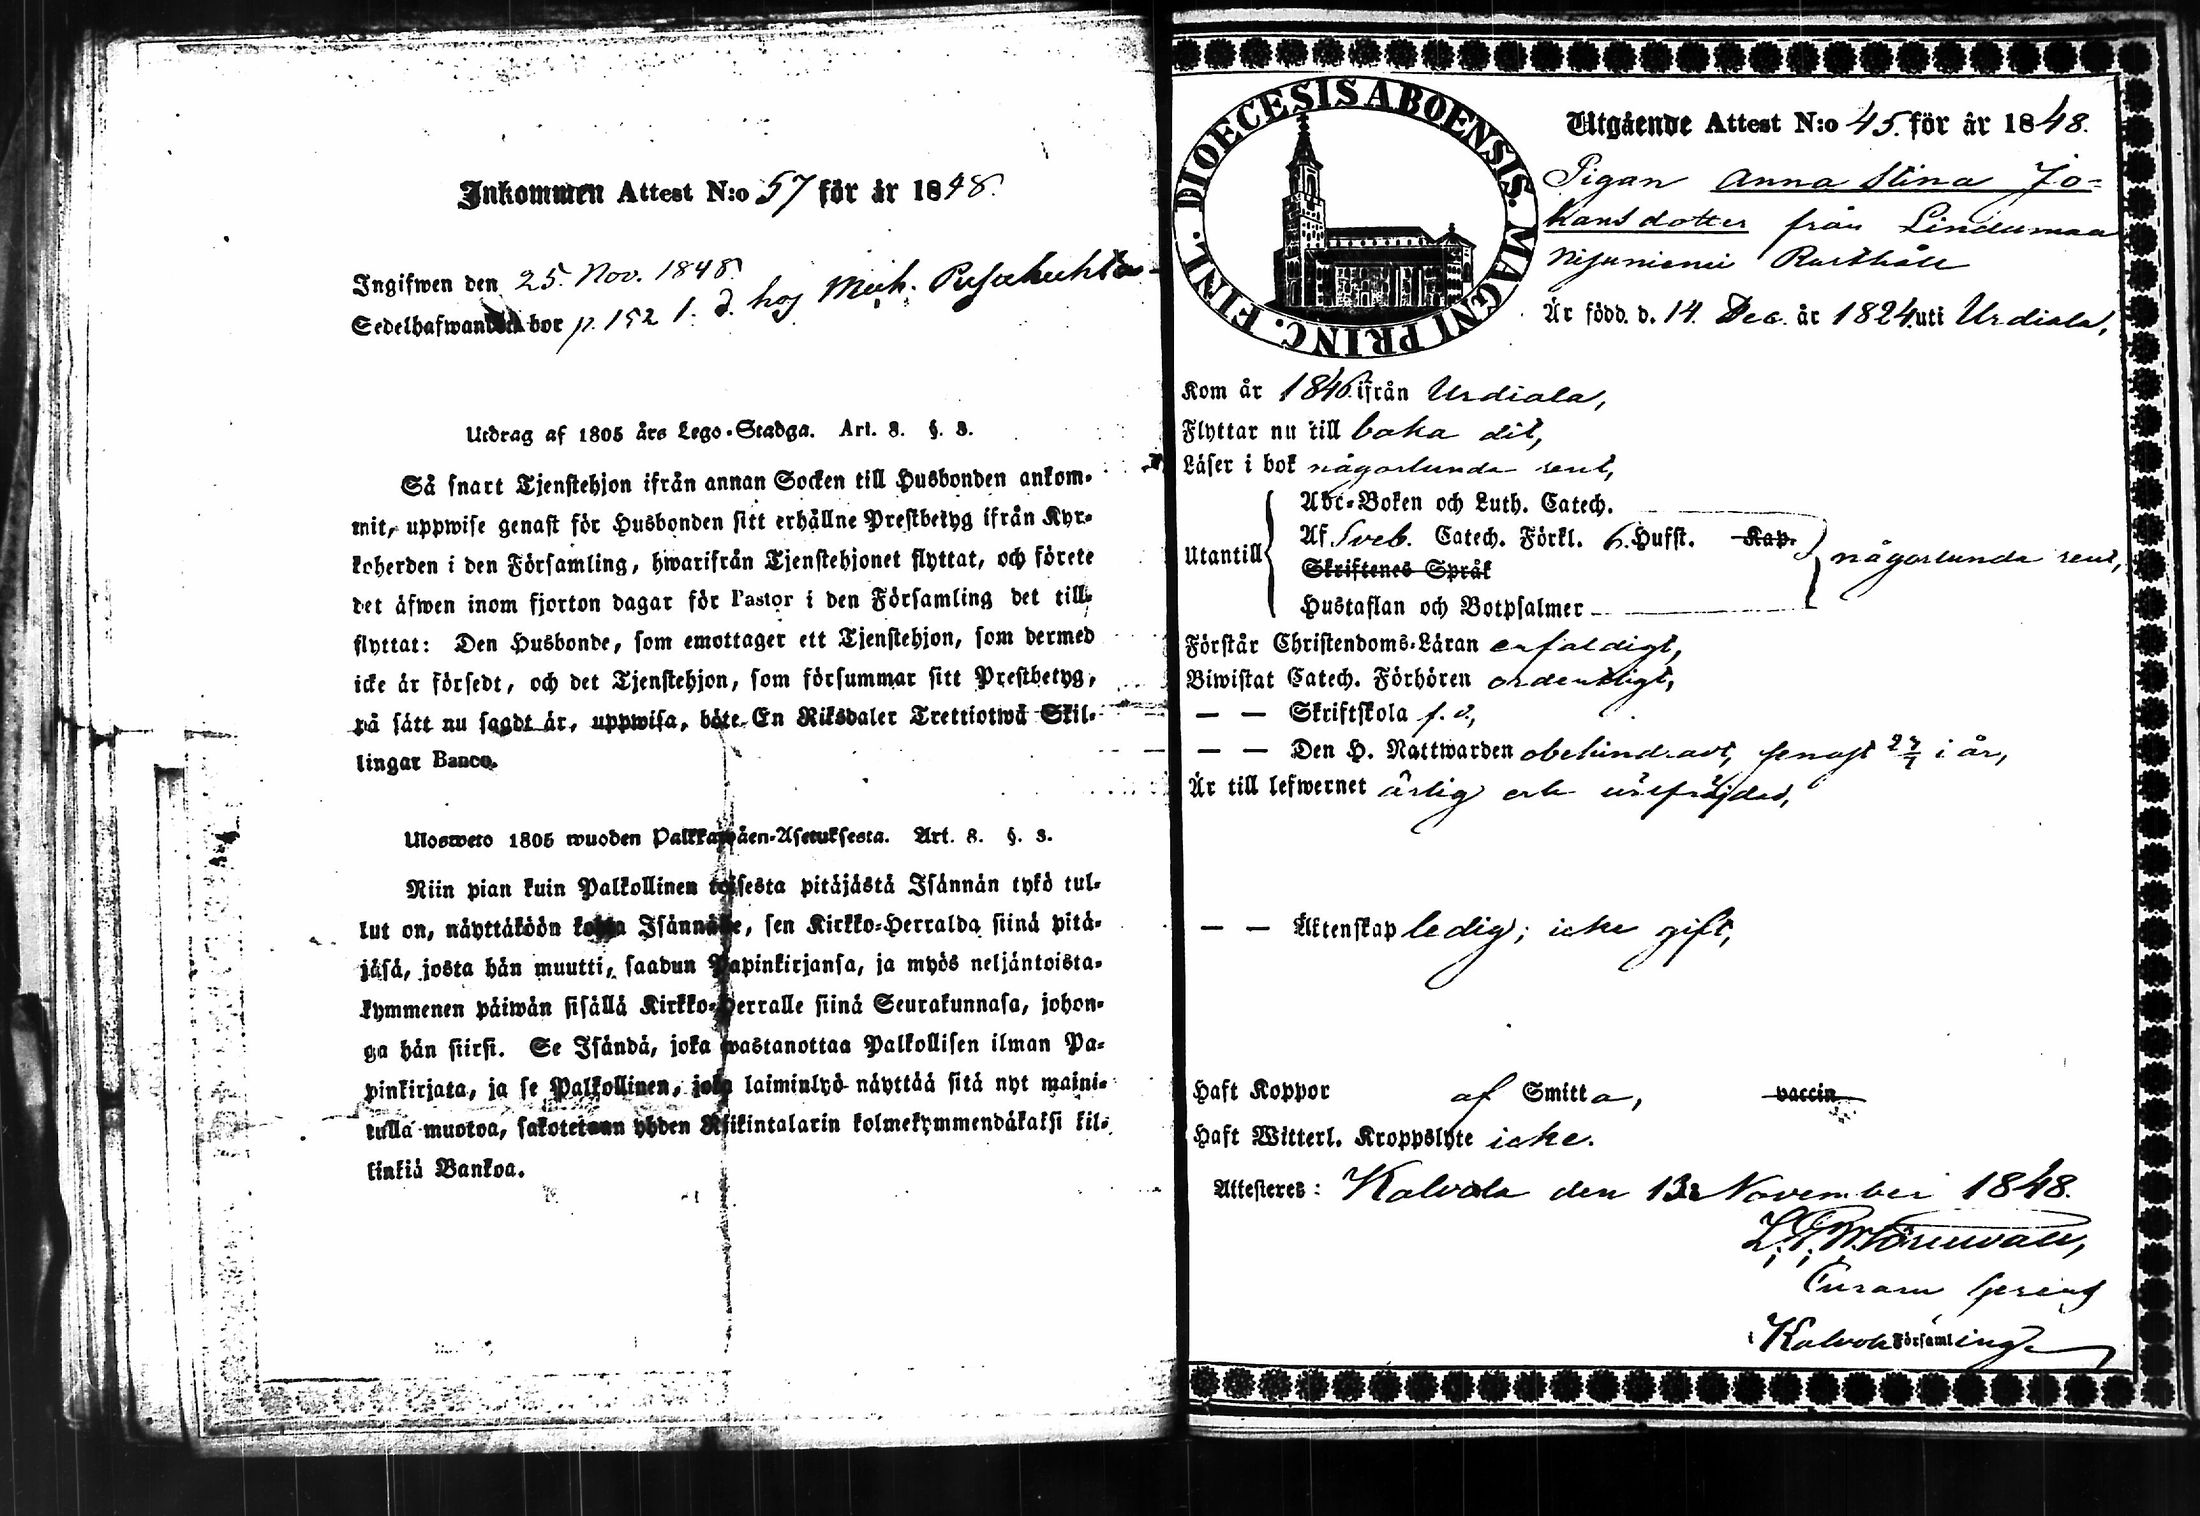 Inkommen Attest N:o 57 för år 1848.
Ingifwen den 25. Nov. 1848.
Sedelhafwanden bor p. 152 1. d. hos Mich.
Utdrag af 1805 års Lego-Stadga. Art. 8. §. 3.
Så snart Tjenstehjon ifrån annan Socken till Husbonden ankom-
mit, uppwise genast för Husbonden sitt erhållne Prestbetyg ifrån Kyr-
koherden i den Församling, hwarifrån Tjenstehjonet flyttat, och förete
det äfwen inom fjorton dagar för Pastor i den Församling det till-
flyttat: Den Husbonde, som emottager ett Tjenstehjon, som dermed
icke är försedt, och det Tjenstehjon, som försummar sitt Prestbetyg,
på sätt nu sagdt är, uppwisa, böte En Riksdaler Trettiotwå Skil-
lingar Banco.
Uloswето 1805 wuoden Palkkawäen-Asetuksesta. Art. 8. §. 3.
Niin pian kuin Palkollinen toisesta pitäjästä Isännän tykö tul-
lut on, näyttäköön kohta Isännälle, sen Kirkko-Herralda siinä pitä-
jäsä, josta hän muutti, saadun Papinkirjansa, ja myös neljäntoista-
kymmenen päiwän sisällä Kirkko-Herralle siinä Seurakunnasa, johon-
ga hän siirsi. Se Isändä, joka wastanottaa Palkollisen ilman Pa-
pinkirjata, ja se Palkollinen, joka laiminlyö näyttää sitä nyt maini-
tulla muotoa, sakotetaan yhden Riikintalarin kolmekymmendäkaksi kil-
linkiä Bankoa.
DIOECESIS ABOENSIS. MAGNI PRINC. FINL.
Utgående Attest N:o 45. för år 1848.
Pigan Anna Stina Jo-
hansdotter från Lindumaa
Rusthåll
Är född. d. 14. Dec. år 1824. uti Urdiala,
Kom år 1846. ifrån Urdiala,
Flyttar nu till baka dit,
Läser i bok någorlunda rent,
Utantill
Abc-Boken och Luth. Catech.
Af Sveb. Catech. Förkl. 6. Hufst. Kap.
Skriftenes Språk
Hustaflan och Botpsalmer
någorlunda rent,
Förstår Christendoms-Läran enfaldigt,
Biwistat Catech. Förhören ordentligt,
— — Skriftskola f. d.,
— — Den H. Nattwarden obehindradt, senast i år,
Är till lefwernet ärlig och wälfräjdad,
— — Äktenskap ledig; icke gift,
Haft Koppor af Smitta, vaccin
Haft Witterl. Kroppslyte icke.
Attesteres: Kalvola den 13 November 1848.
Curam gerens
i Kalvola Församling